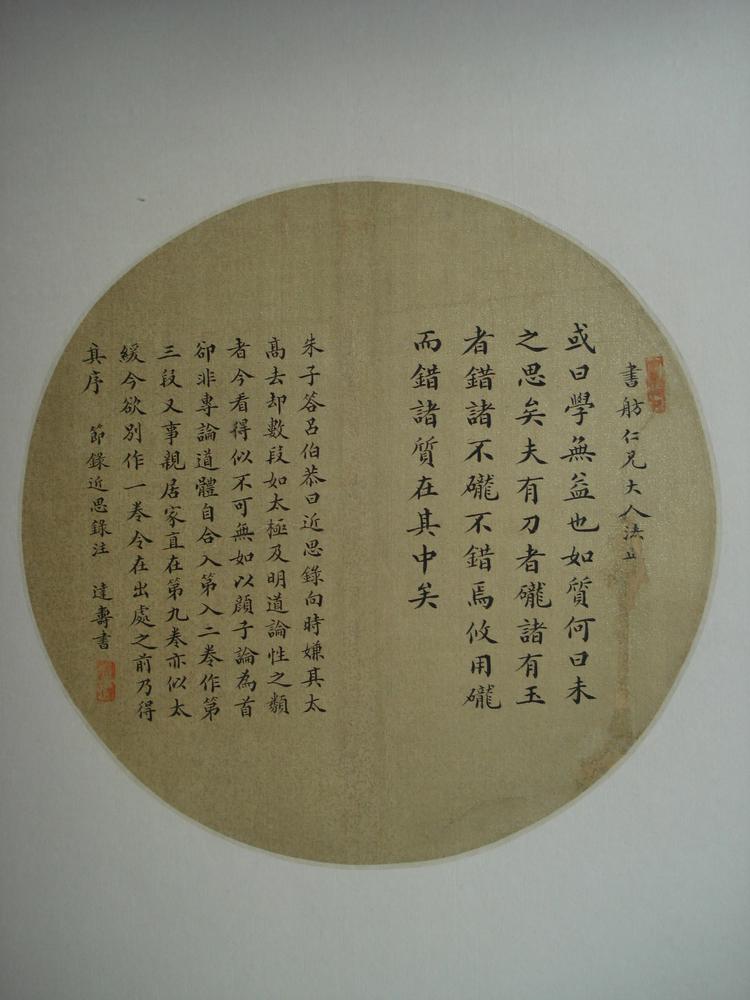 書舫仁兄大人法正
或曰學無益也如質何曰未
之思矣夫有刀者礲諸有玉
者錯諸不礲不錯焉攸用礲
而錯諸質在其中矣
朱子答呂伯恭曰近思錄向時嫌其太
高去却數段如太極及明道論性之類
者今看得似不可無如以顔子論為首
卻非專論道體自合入第入二卷作第
三段又事親居家直在第九卷亦似太
緩今欲別作一卷令在出處之前乃得
其序 節錄近思錄注 達壽書